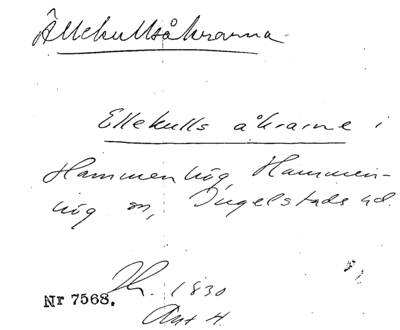 Ällekullsåkrarna
Ellekulls åkrarne i
Hammenhög, Hammen-
hög sn, Ingelstads hd.
1830
Nr 7568.
Ant H.